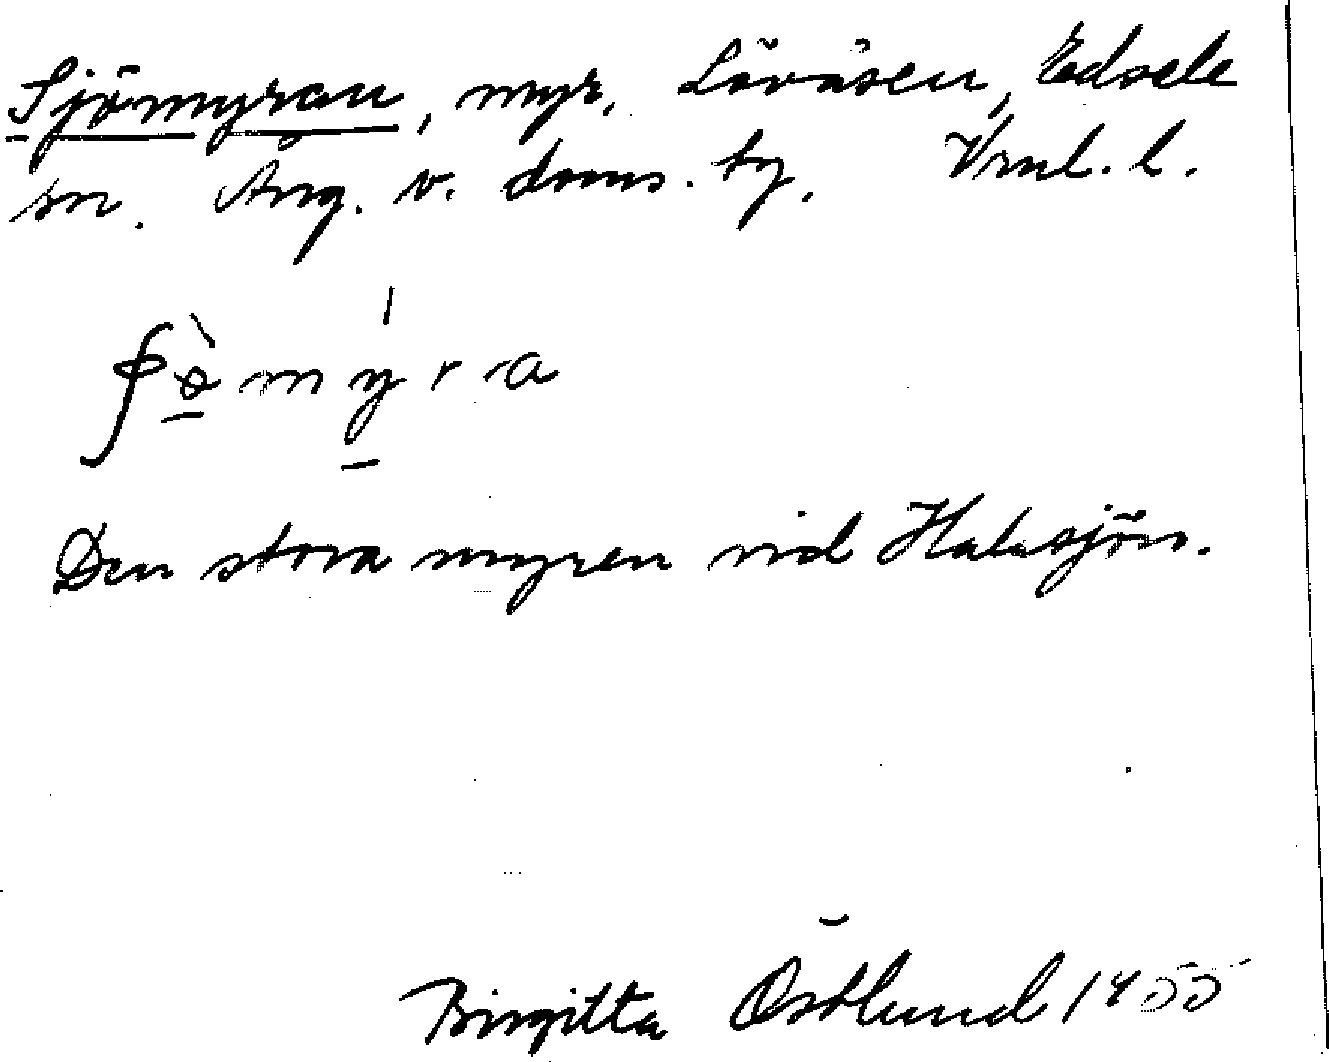 Sjömyran, myr, Lövåsen, Edsele
sn. Ång. v. doms. tg. Vrnl. l.
ʃø̀mýra
Den stora myren vid Halasjön.
Birgitta Östlund 1955